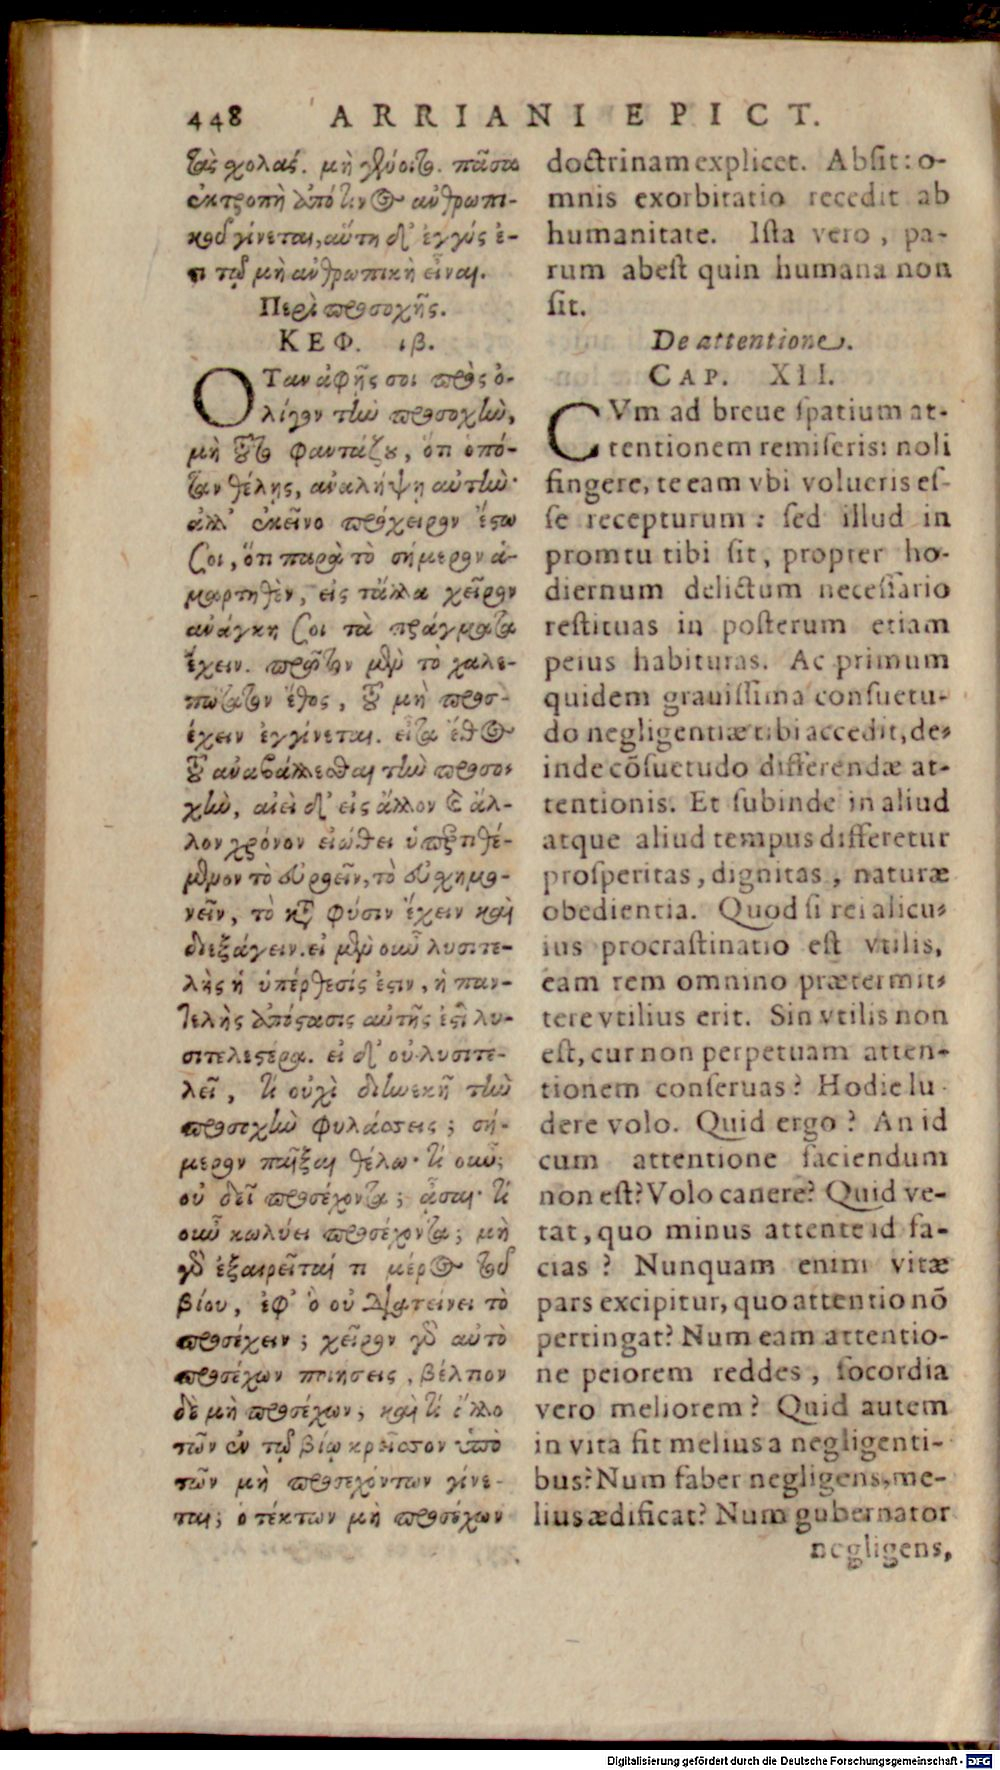 448 ARRIANI EPICT.
τὰς χολάς. μὴ γένοιτο. πᾶσα
ἐκτροπὴ ἀπό τινος ἀνθρωπι-
κοῦ γίνεται, αὕτη δ' ἐγγύς ἐ-
τι τῷ μὴ ἀνθρωπικὴ εἶναι.
Περὶ προσοχῆς.
ΚΕΦ. ιβ.
ΟΤαν ἀφῇς σοι πρὸς ὀ-
λίγον τὴν προσοχὴν,
μὴ τοῦτο φαντάζου, ὅτι ὁπό-
ταν θέλῃς, ἀναλήψῃ αὐτὴν·
ἀλλ' ἐκεῖνο πρόχειρον ἔστω
σοι, ὅτι παρὰ τὸ σήμερον ἁ-
μαρτηθὲν, εἰς τἄλλα χεῖρον
ἀνάγκη σοι τὰ πράγματα
ἔχειν. πρῶτον μὲν τὸ χαλε-
πώτατον ἔθος, τοῦ μὴ προσ-
έχειν ἐγγίνεται. εἶτα ἔθος
τοῦ ἀναβάλλεσθαι τὴν προσο-
χὴν, αἰεὶ δ' εἰς ἄλλον καὶ ἄλ-
λον χρόνον εἰώθει ὑπερτιθέ-
μενον τὸ εὐροεῖν, τὸ εὐσχημο-
νεῖν, τὸ κατὰ φύσιν ἔχειν καὶ
διεξάγειν. εἰ μὲν οὖν λυσιτε-
λὴς ἡ ὑπέρθεσίς ἐστιν, ἡ παν-
τελὴς ἀπόστασις αὐτῆς ἐστὶ λυ-
σιτελεστέρα. εἰ δ' οὐ λυσιτε-
λεῖ, τί οὐχὶ διηνεκῆ τὴν
προσοχὴν φυλάσσεις; σή-
μερον παῖξαι θέλω· τί οὖν;
οὐ δεῖ προσέχοντα; ᾆσαι· τί
οὖν κωλύει προσέχοντα; μὴ
γὰρ ἐξαιρεῖταί τι μέρος τοῦ
βίου, ἐφ' ὃ οὐ διατείνει τὸ
προσέχειν; χεῖρον γὰρ αὐτὸ
προσέχων ποιήσεις, βέλτιον
δὲ μὴ προσέχων; καὶ τί ἄλλο
τῶν ἐν τῷ βίῳ κρεῖσσον ὑπὸ
τῶν μὴ προσεχόντων γίνε-
ται; ὁ τέκτων μὴ προσέχων
doctrinam explicet. Absit: o-
mnis exorbitatio recedit ab
humanitate. Ista vero, pa-
rum abest quin humana non
sit.
De attentione.
CAP. XII.
CVm ad breue spatium at-
tentionem remiseris: noli
fingere, te eam vbi volueris es-
se recepturum: sed illud in
promtu tibi sit, propter ho-
diernum delictum necessario
restituas in posterum etiam
peius habituras. Ac primum
quidem grauissima consuetu-
do negligentiæ tibi accedit, de-
inde cõsuetudo differendæ at-
tentionis. Et subinde in aliud
atque aliud tempus differetur
prosperitas, dignitas, naturæ
obedientia. Quod si rei alicu-
ius procrastinatio est vtilis,
eam rem omnino prætermit-
tere vtilius erit. Sin vtilis non
est, cur non perpetuam atten-
tionem conseruas? Hodie lu-
dere volo. Quid ergo? An id
cum attentione faciendum
non est? Volo canere? Quid ve-
tat, quo minus attente id fa-
cias? Nunquam enim vitæ
pars excipitur, quo attentio nõ
pertingat? Num eam attentio-
ne peiorem reddes, socordia
vero meliorem? Quid autem
in vita fit melius a negligenti-
bus? Num faber negligens, me-
lius ædificat? Num gubernator
negligens,
Digitalisierung gefördert durch die Deutsche Forschungsgemeinschaft - DFG